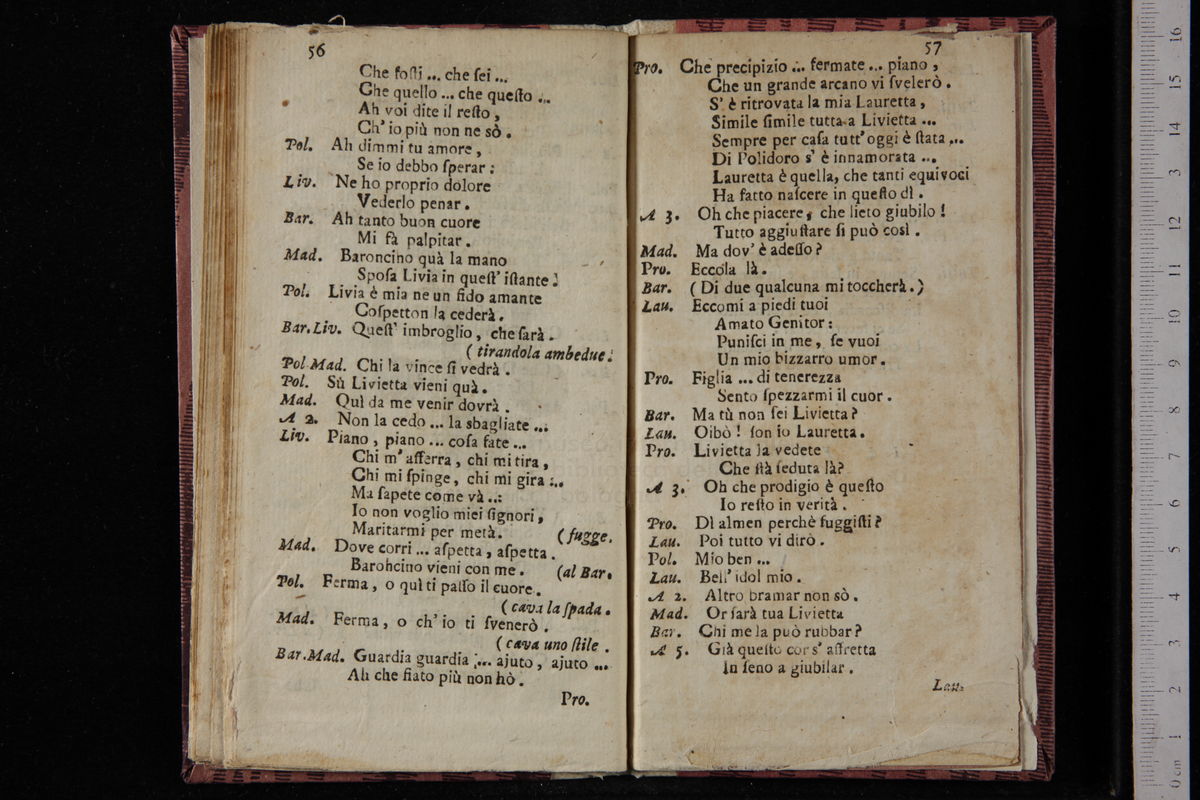 56
Che foſti ... che ſei ...
Che quello ... che queſto ...
Ah voi dite il reſto,
Ch' io più non ne sò.
Pol. Ah dimmi tu amore,
Se io debbo ſperar:
Liv. Ne ho proprio dolore
Vederlo penar.
Bar. Ah tanto buon cuore
Mi fà palpitar.
Mad. Baroncino quà la mano
Spoſa Livia in queſt' iſtante!
Pol. Livia è mia ne un fido amante
Coſpetton la cederà.
Bar. Liv. Queſt' imbroglio, che ſarà.
(tirandola ambedue.
Pol Mad. Chi la vince ſi vedrà.
Pol. Sù Livietta vieni quà.
Mad. Quì da me venir dovrà.
A 2. Non la cedo ... la sbagliate ...
Liv. Piano, piano ... coſa fate ...
Chi m' afferra, chi mi tira,
Chi mi ſpinge, chi mi gira ...
Ma ſapete come và ...
Io non voglio miei ſignori,
Maritarmi per metà. (fugge.
Mad. Dove corri ... aſpetta, aſpetta.
Barohcino vieni con me. (al Bar.
Pol. Ferma, o quì ti paſſo il cuore.
(cava la ſpada.
Mad. Ferma, o ch' io ti ſvenerò.
(cava uno ſtile.
Bar. Mad. Guardia guardia ... ajuto, ajuto ...
Ah che fiato più non hò.
Pro.
57
Pro. Che precipizio ... fermate ... piano,
Che un grande arcano vi ſvelerò.
S' è ritrovata la mia Lauretta,
Simile ſimile tutta a Livietta ...
Sempre per caſa tutt' oggi è ſtata ...
Di Polidoro s' è innamorata ...
Lauretta è quella, che tanti equivoci
Ha fatto naſcere in queſto dì.
A 3. Oh che piacere, che lieto giubilo!
Tutto aggiuſtare ſi può così.
Mad. Ma dov' è adeſſo?
Pro. Eccola là.
Bar. (Di due qualcuna mi toccherà.)
Lau. Eccomi a piedi tuoi
Amato Genitor:
Puniſci in me, ſe vuoi
Un mio bizzarro umor.
Pro. Figlia ... di tenerezza
Sento ſpezzarmi il cuor.
Bar. Ma tù non ſei Livietta?
Lau. Oibò! ſon io Lauretta.
Pro. Livietta la vedete
Che ſtà ſeduta là?
A 3. Oh che prodigio è queſto
Io reſto in verità.
Pro. Dì almen perchè fuggiſti?
Lau. Poi tutto vi dirò.
Pol. Mio ben ...
Lau. Bell' idol mio.
A 2. Altro bramar non sò.
Mad. Or ſarà tua Livietta
Bar. Chi me la può rubbar?
A 5. Già queſto cor s' affretta
In ſeno a giubilar.
Lau.